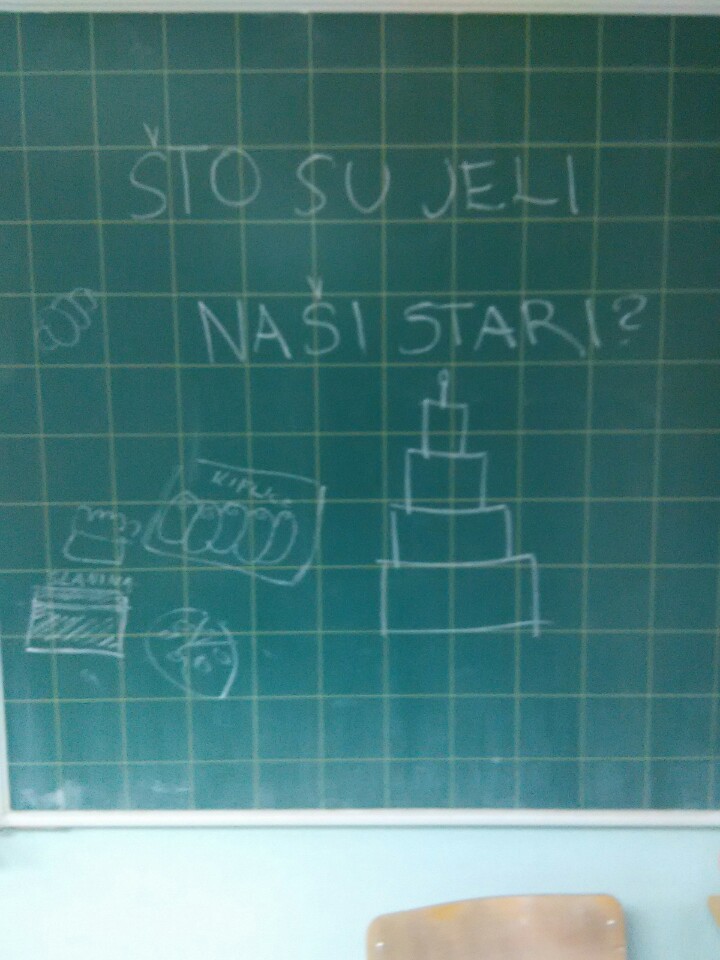 ŠTO SU JELI
NAŠI STARI?
SLANINA